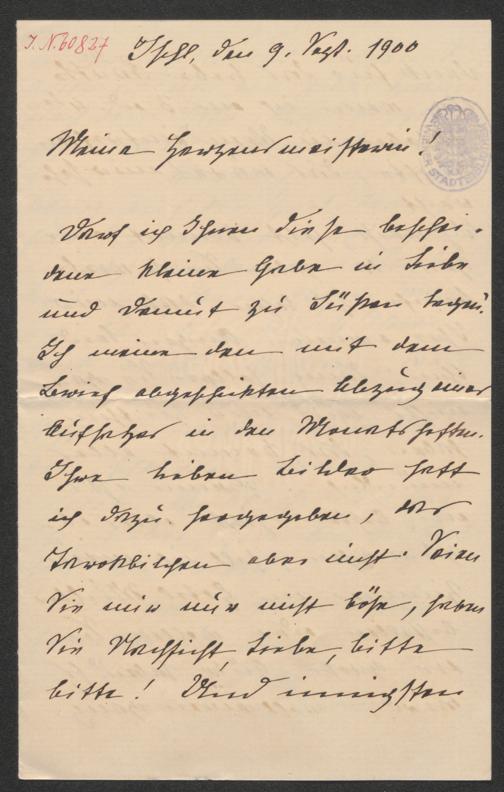 J.N. 60827
Ischl, den 9. Sept. 1900
Meine Herzensmeisterin!
Darf ich Ihnen diese beschei-
dene kleine Gabe in Liebe
und Demut zu Füßen legen.
Ich meine den mit dem
Brief abgeschickten Abzug eines
Aufsatzes in den Monatsheften.
Ihre lieben Bilder hatt
ich dazu hergegeben, das
aber nicht. Seien
Sie mir nur nicht böse, haben
Sie Nachsicht, Liebe, bitte
bitte! Und innigsten